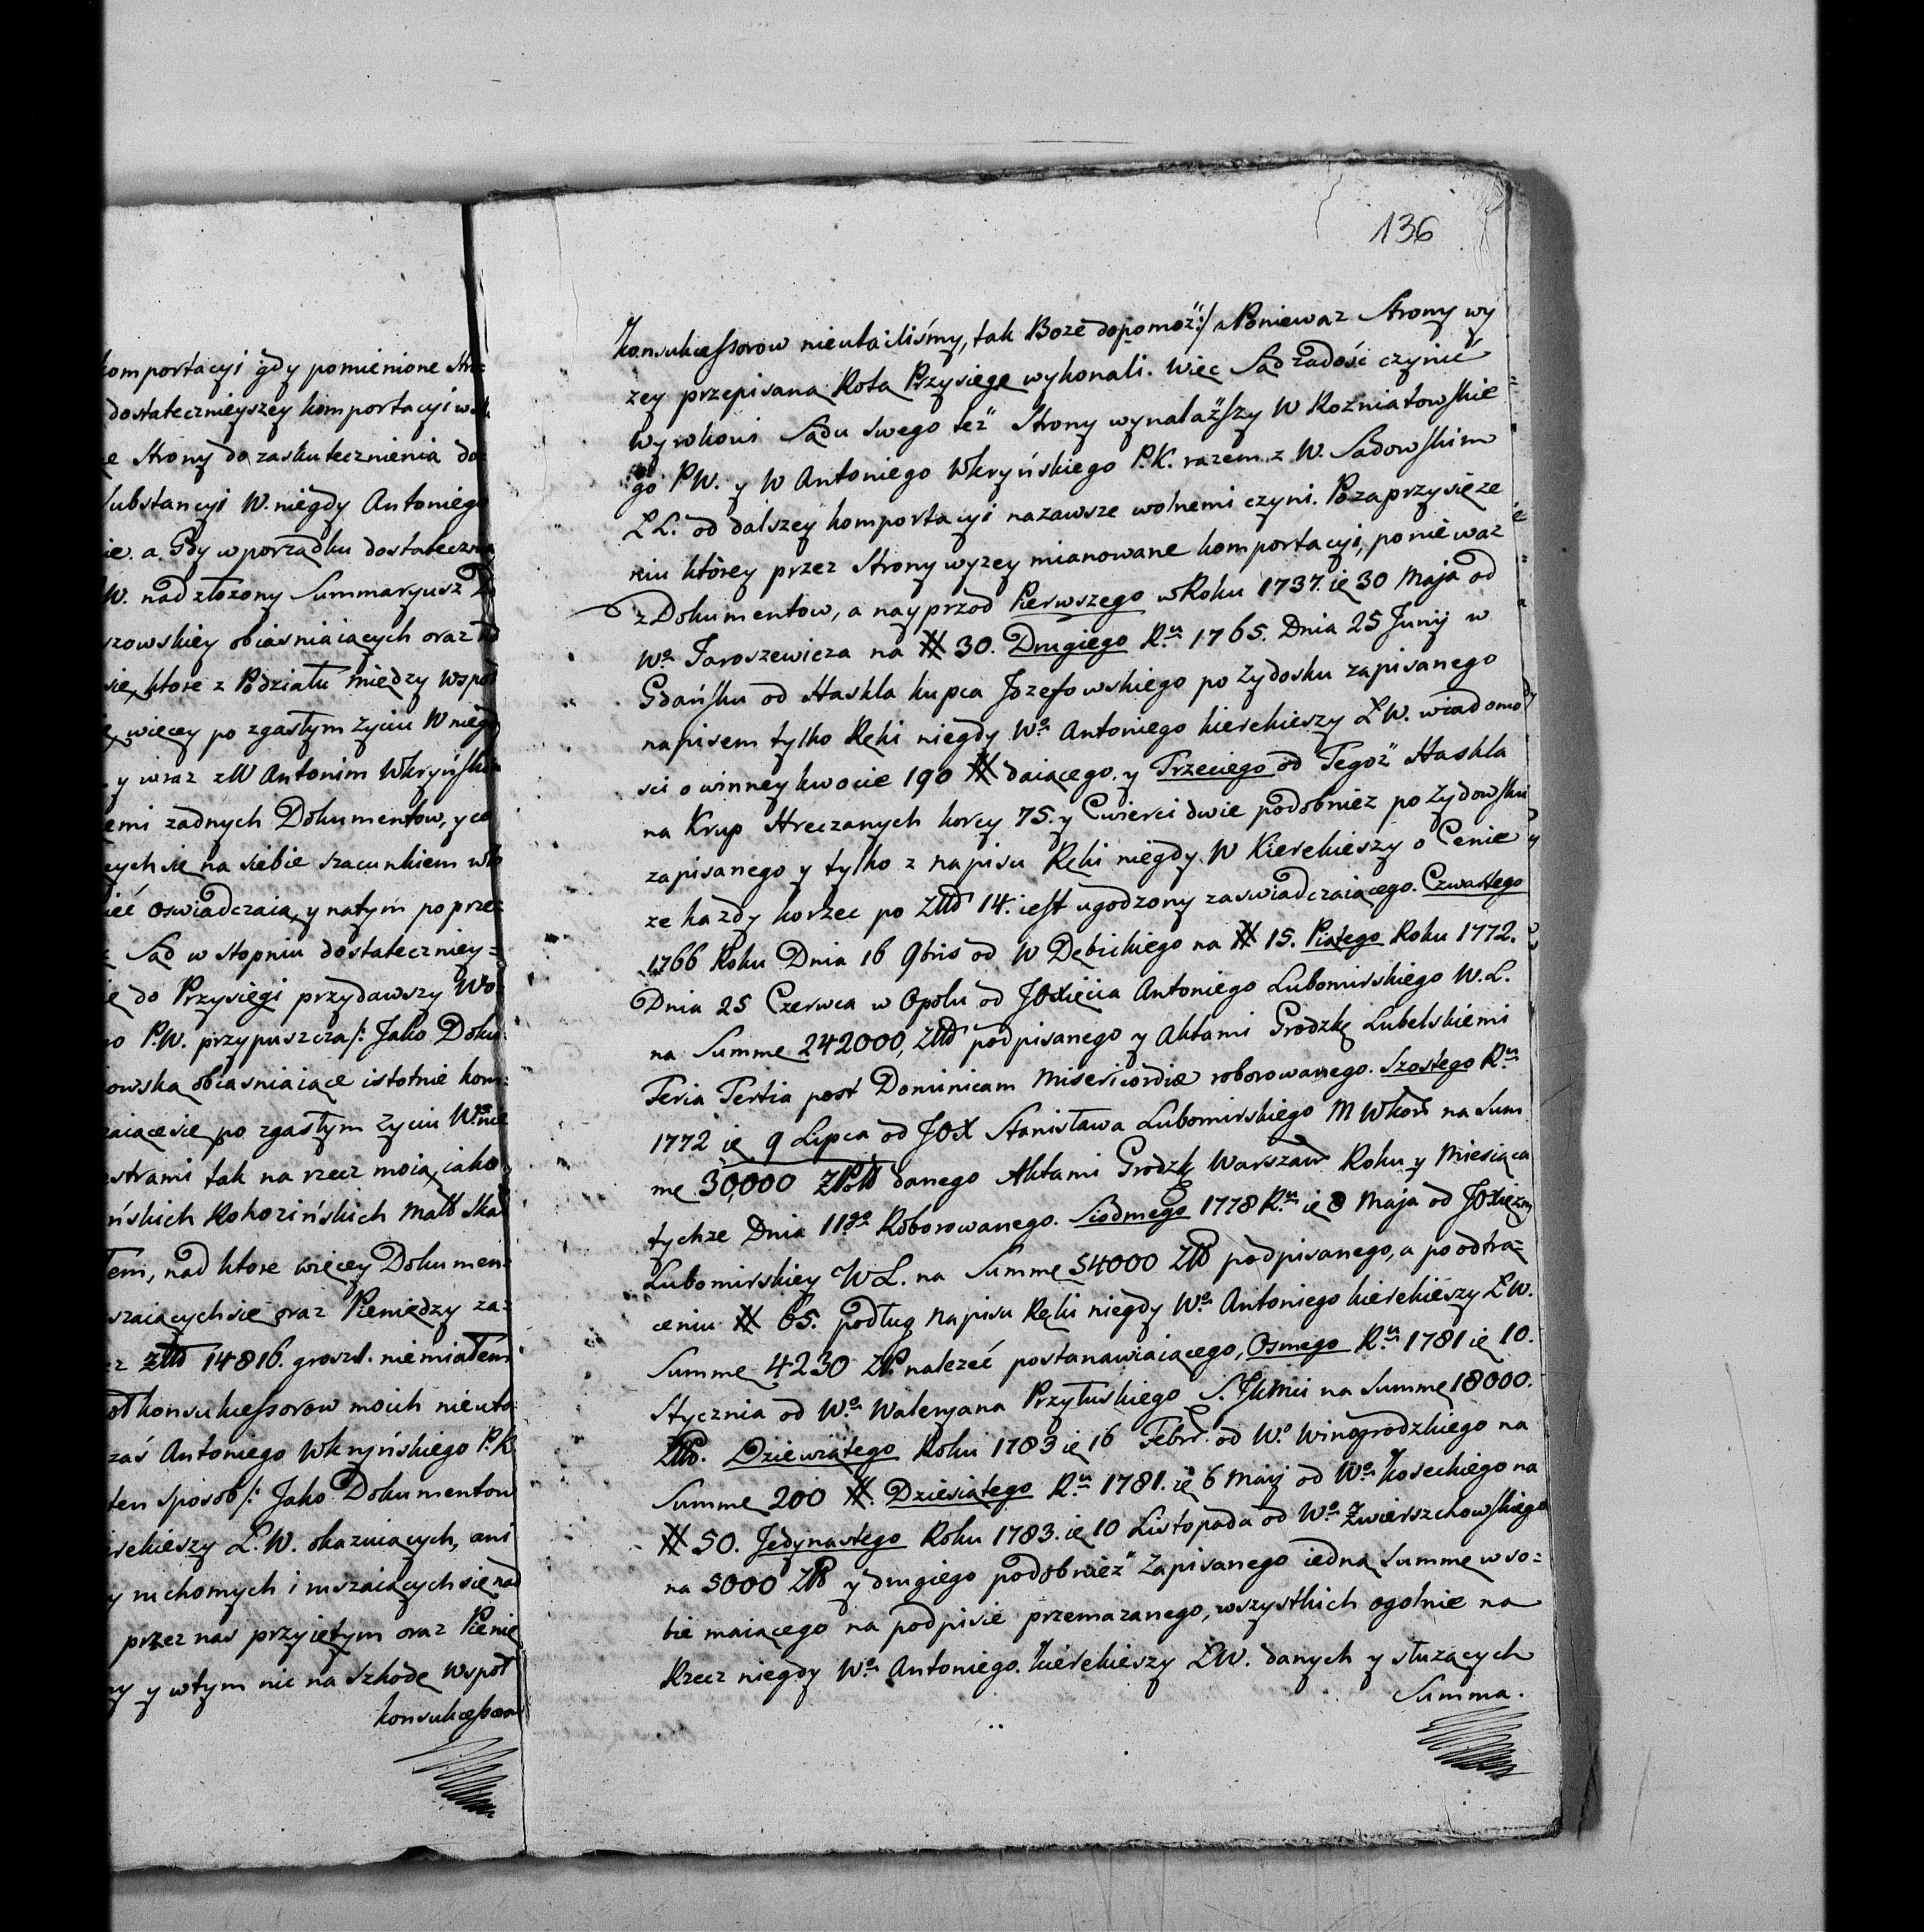 komportacyi gdy pomienione Stro=
dostatecznieyszey komportacyi
Strony do zaskutecznienia do=
Substancyi W. niegdy Antoniego
ie. a Gdy w porządku dostateczn
W. nad złożony Summaryusz
szowskiey obiasniaiących oraz
się, ktore z Podziału między wspoł
więcey po zgasłym życiu W niegdy
y wraz z W Antonim Wkryńskim
emi żadnych Dokumentow, y co
ych się na siebie szacunkiem
ieć oswiadczaią, y natym poprze=
Sąd w stopniu dostateczniey=
ię do Przysięgi przydawszy Wo
o P.W. przypuszcza /: Jako Doku=
owską obiasniaiące istotnie kom=
zaiące się po zgasłym życiu Wo. nie
estrami tak na rzecz moią, iako
ńskich Rohozińskich Małż Skar
Tem, nad ktore więcey Dokumen=
szaiących się oraz Pieniędzy za=
złł 14816. grosz 1. nie miałem
oł konsukcessorow moich nieuta=
zaś Antoniego Wkryńskiego P.K.
ten sposob /: Jako Dokumentow
erekieszy Ł.W. okazuiących, ani
y ruchomych i ruszaiących się nad
przez nas przyiętym oraz Pienię
ny y wtym nic na szkodę wspoł
konsukcessorow
136
konsukcessorow nieutailiśmy, tak Boże dopomoż :/ Poniewaz Strony wy
zey przepisaną Rotą Przysięgę wykonali. Więc Sąd zadość czynić
wyrokowi Sądu swego też Strony wynalazszy W Rozniatowskie
go PW. y W Antoniego Wkryńskiego P.K. razem z W. Sadowskim
Ł Ł. od dalszey komportacyi nazawsze wolnemi czyni. Po zaprzysięże
niu ktòrey przez Strony wyzey mianowane komportacyi, poniewaz
z Dokumentow, a nayprzod Pierwszego w Roku 1737. ię 30 Maja od
Wo. Jaroszewicza na # 30. Drugiego Ru. 1765. Dnia 25 Junij w
Gdańsku od Haskla kupca Jozefowskiego po Zydosku zapisanego
napisem tylko Ręki niegdy Wo. Antoniego kierekieszy Ł W. wiadomo
sci o winney kwocie 190 # daiącego. y Trzeciego od Tegoż Haskla
na Krup Hreczanych korcy 75. y Cwierci dwie podobniez po Zydowsku
zapisanego y tylko z napisu Ręki niegdy W Kierekieszy o Cenie
ze kazdy korzec po złł 14. iest ugodzony zaswiadczaiącego. Czwartego
1766 Roku Dnia 16 9bris od W Dębickiego na # 15. Piątego Roku 1772.
Dnia 25 Czerwca w Opolu od JOXięcia Antoniego Lubomirskiego W.L.
na Summę 242000, złł podpisanego y Aktami Grodzkę Lubelskiemi
Feria Tertia post Dominicam Misericordiæ roborowanego. Szostego Ru.
1772 ię 9 Lipca od JOX Stanisława Lubomirskiego M WKor na Sum
mę 30,000 złPoll danego Aktami Grodzk Warszaw Roku y Miesiąca
tychze Dnia 11go Roborowanego. Siodmego 1778 Ru. ię 8 Maja od JOXiężny
Lubomirskiey WL. na Summę 54000 złP podpisanego, a po odtrą=
ceniu # 65. podług Napisu Ręki niegdy Wo. Antoniego kierekieszy Ł W.
Summę 4230 złP. należeć postanawiaiącego, Osmego Ru. 1781 ię 10.
Stycznia od Wo. Waleryana Przyłuskiego na Summę 18000.
złP. Dziewiątego Roku 1783 ię 16 Febr. od Wo. Winogrodzkiego na
Summę 200 #. Dziesiątego Ru. 1781. ię 6 Maij od Wo. Koseckiego na
# 50. Jedynastego Roku 1783. ię 10 Listopada od Wo. Zwierszchowskiego
na 5000 złP y drugiego podobnież Zapisanego iedną Summę w so=
bie maiącego na podpisie przemazanego, wszystkich ogolnie na
Rzecz niegdy Wo. Antoniego kierekieszy Ł W. danych y służących
Summa.